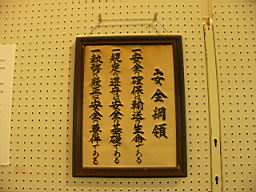 安全綱領
一安全の確保は輸送の生命である
一規定の遵守は安全の基礎である
一執務の厳正は安全の要件である